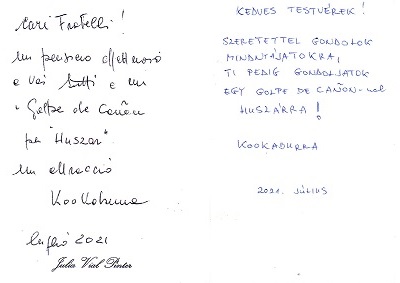 Cari Fratelli!
un pensiero affettuoso
a voi tutti e un
"Golpe de Cañón
per "Huszar"
un abbraccio
Kookaburra
luglio 2021
Julia Vial Pinter
KEDVES TESTVÉREK!
SZERETETTEL GONDOLOK
MINDNYÁJATOKRA,
TI PEDIG GONDOLJATOK
EGY GOLPE DE CAÑON-nal
HUSZÁRRA!
KOOKABURRA
2021. JÚLIUS